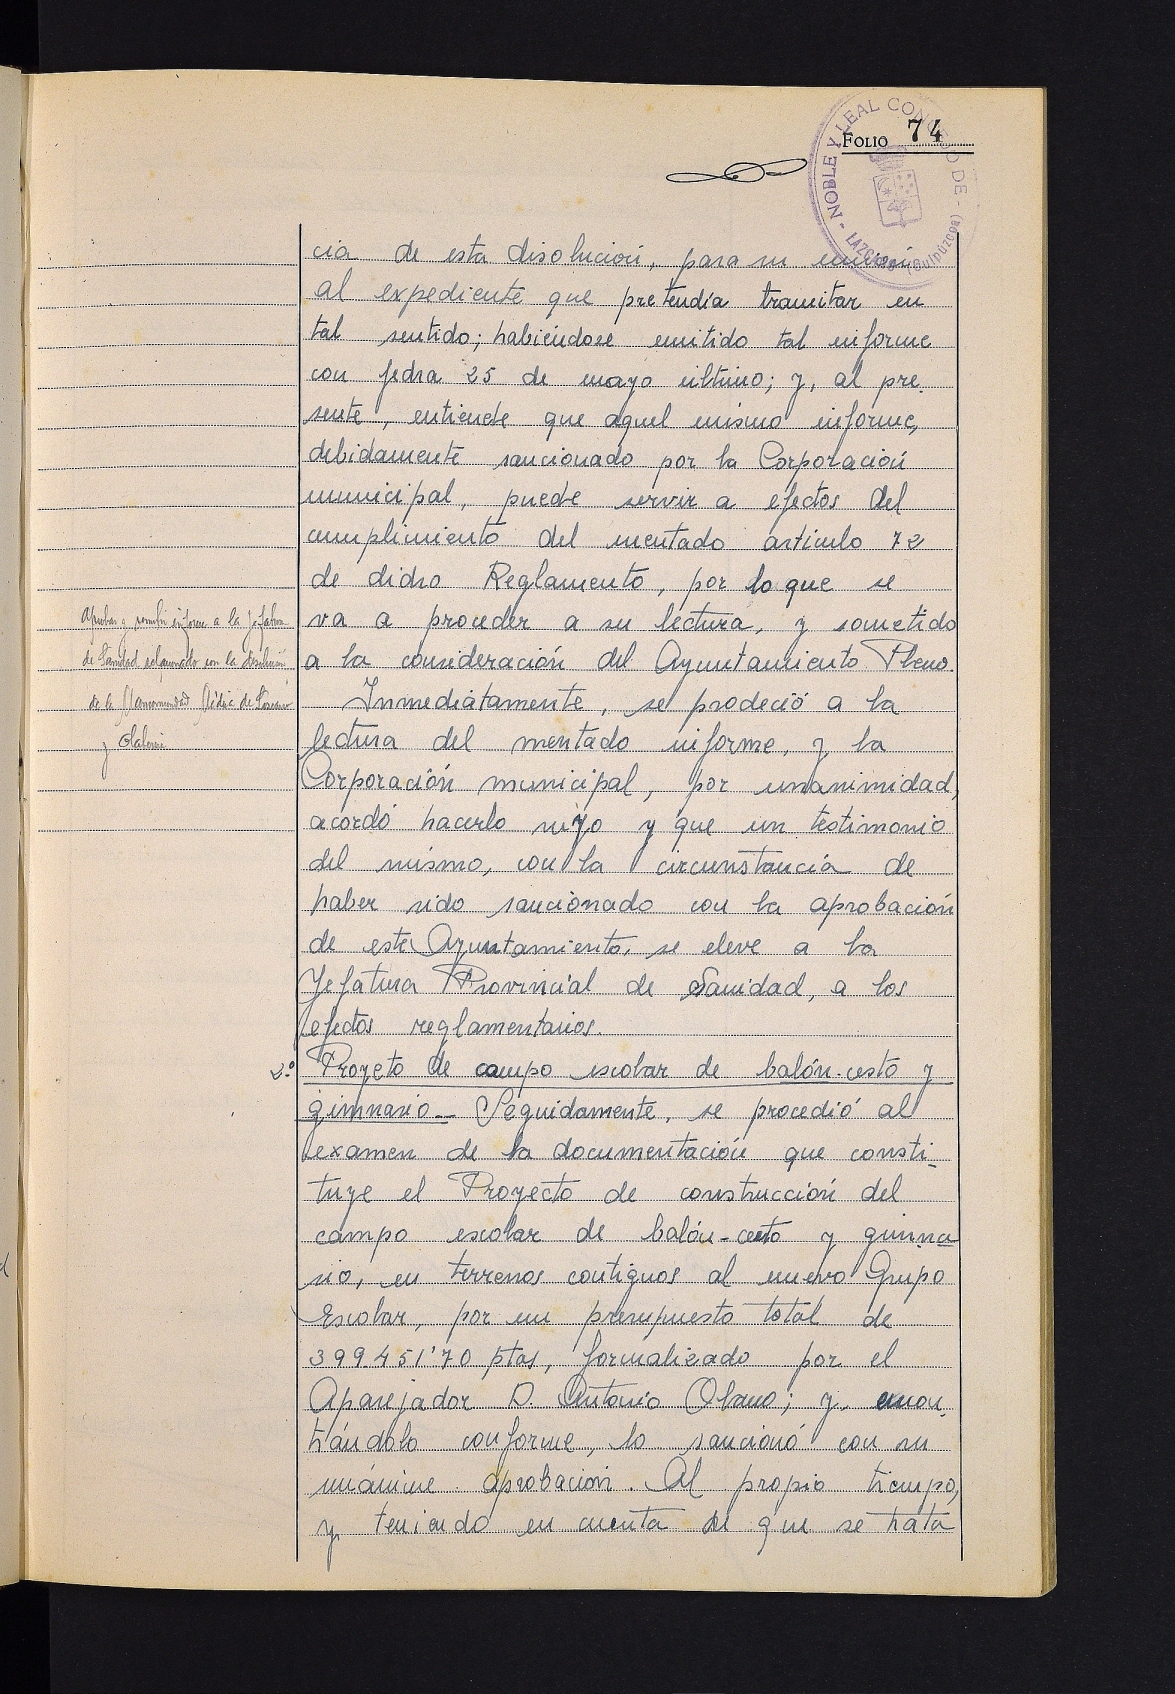 FOLIO 74
NOBLE Y LEAL CONCEJO DE - LAZCANO - (Guipúzcoa)
cia de esta disolución, para su unión
al expediente que pretendía tramitar en
tal sentido; habiéndose emitido tal informe
con fecha 25 de mayo último; y, al pre-
sente, entiende que aquel mismo informe,
debidamente sancionado por la Corporación
municipal, puede servir a efectos del
cumplimiento del mentado artículo 72
de dicho Reglamento, por lo que se
va a proceder a su lectura, y sometido
a la consideración del Ayuntamiento Pleno.
Aprobar y remitir informe a la Jefatura
de Sanidad relacionado con la disolución
de la Mancomunidad Médica de Lazcano
y Olaberría
Inmediatamente, se procedió a la
lectura del mentado informe, y la
Corporación municipal, por unanimidad,
acordó hacerlo suyo y que un testimonio
del mismo, con la circunstancia de
haber sido sancionado con la aprobación
de este Ayuntamiento, se eleve a la
Jefatura Provincial de Sanidad, a los
efectos reglamentarios.
2º Proyeto de campo escolar de balón-cesto y
gimnasio.- Seguidamente, se procedió al
examen de la documentación que consti-
tuye el Proyecto de construcción del
campo escolar de balón-cesto y gimna
sio, en terrenos contiguos al nuevo Grupo
Escolar, por un presupuesto total de
399451'70 ptas, formalizado por el
Aparejador D. Antonio Olano; y, encon-
trándolo conforme, lo sancionó con su
unánime aprobación. Al propio tiempo,
y teniendo en cuenta de que se trata